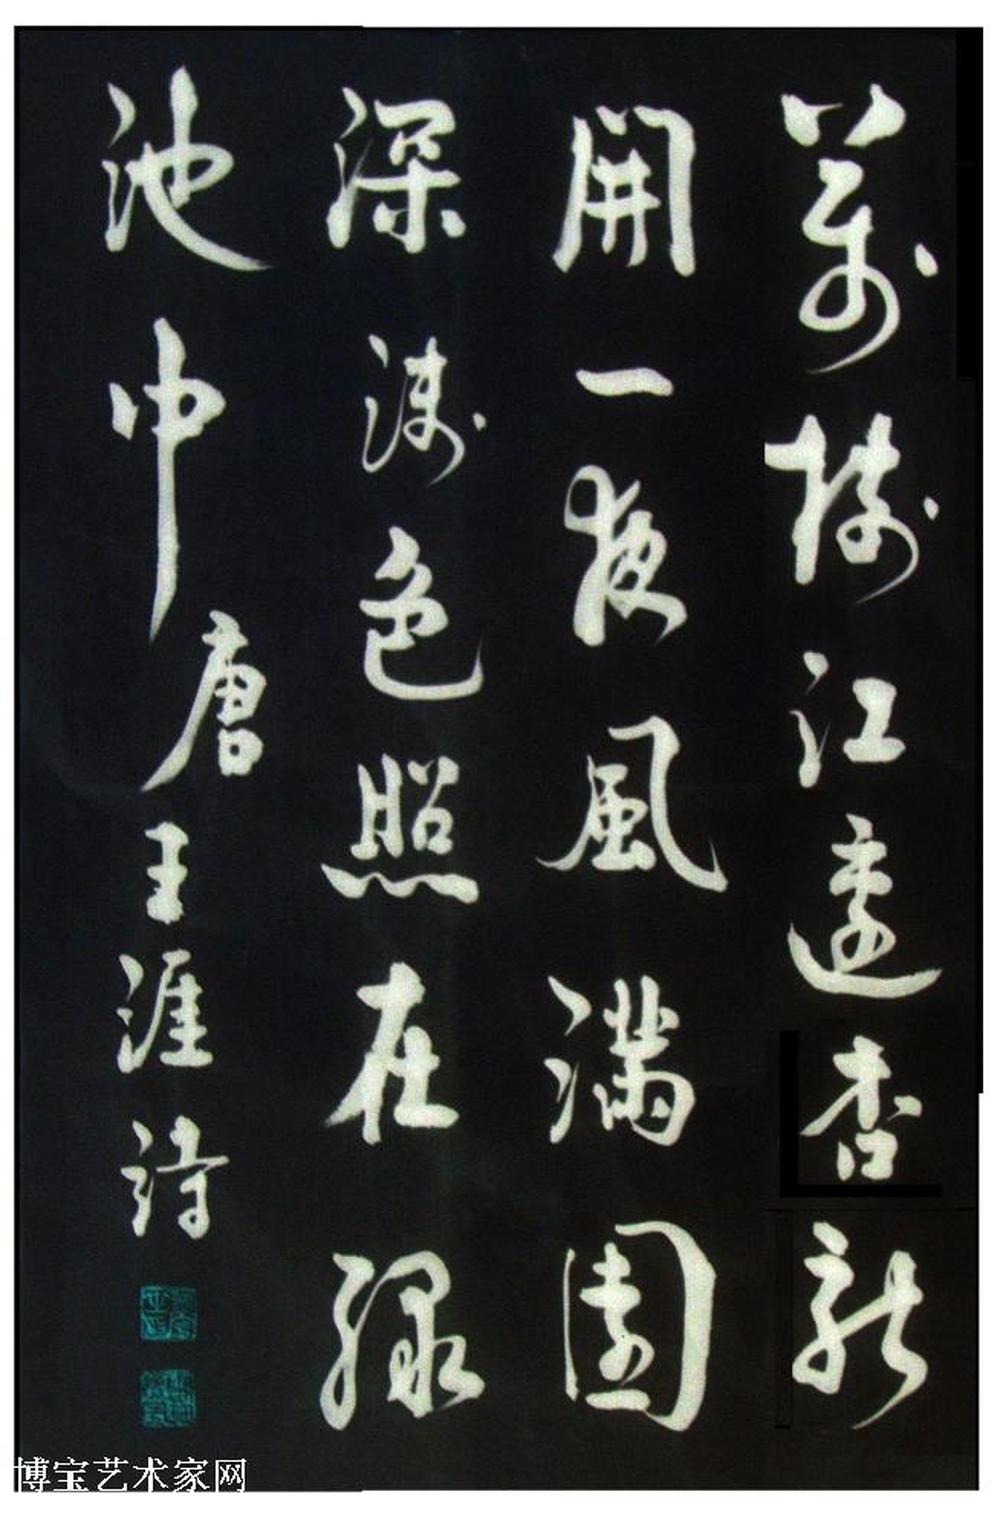 萬樹江邊杏新
開一夜風滿園
深淺色照在綠
池中
唐王涯詩
博宝艺术家网